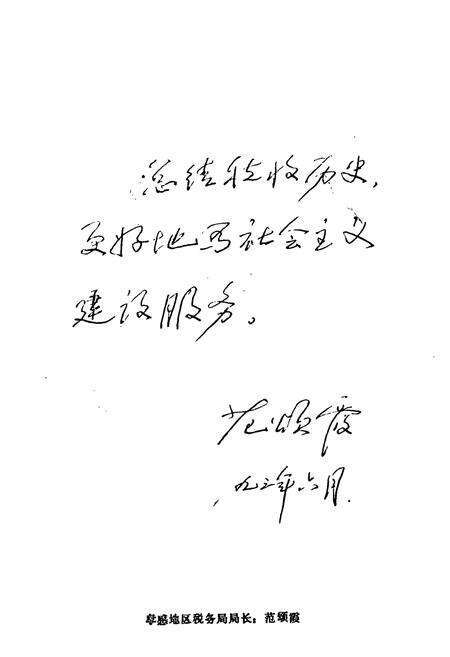 总结税收历史，
更好地为社会主义
建设服务。
范颂霞
九三年六月
孝感地区税务局局长：范颂霞